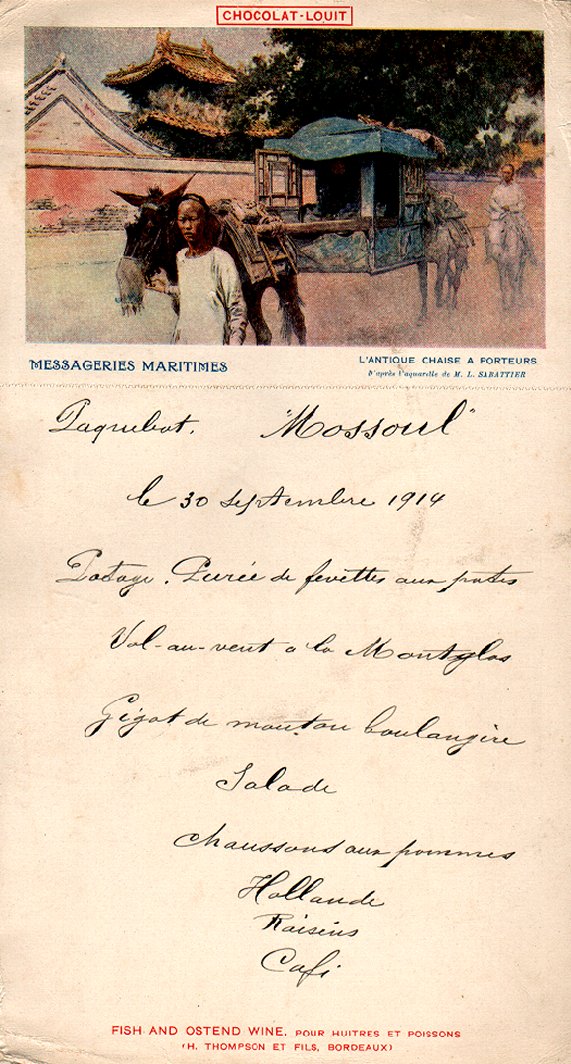 CHOCOLAT-LOUIT
MESSAGERIES MARITIMES
L'ANTIQUE CHAISE A PORTEURS
D'après l'aquarelle de M. L. SABATTIER
Paquebot. "Mossoul"
le 30 Septembre 1914
Potage. Purée de fevettes aux pates
Vol-au-vent a la Montglas
Gigot de mouton boulangère
Salade
Chaussons aux pommes
Hollande
Raisins
Café
FISH AND OSTEND WINE. POUR HUITRES ET POISSONS
(H. THOMPSON ET FILS, BORDEAUX)